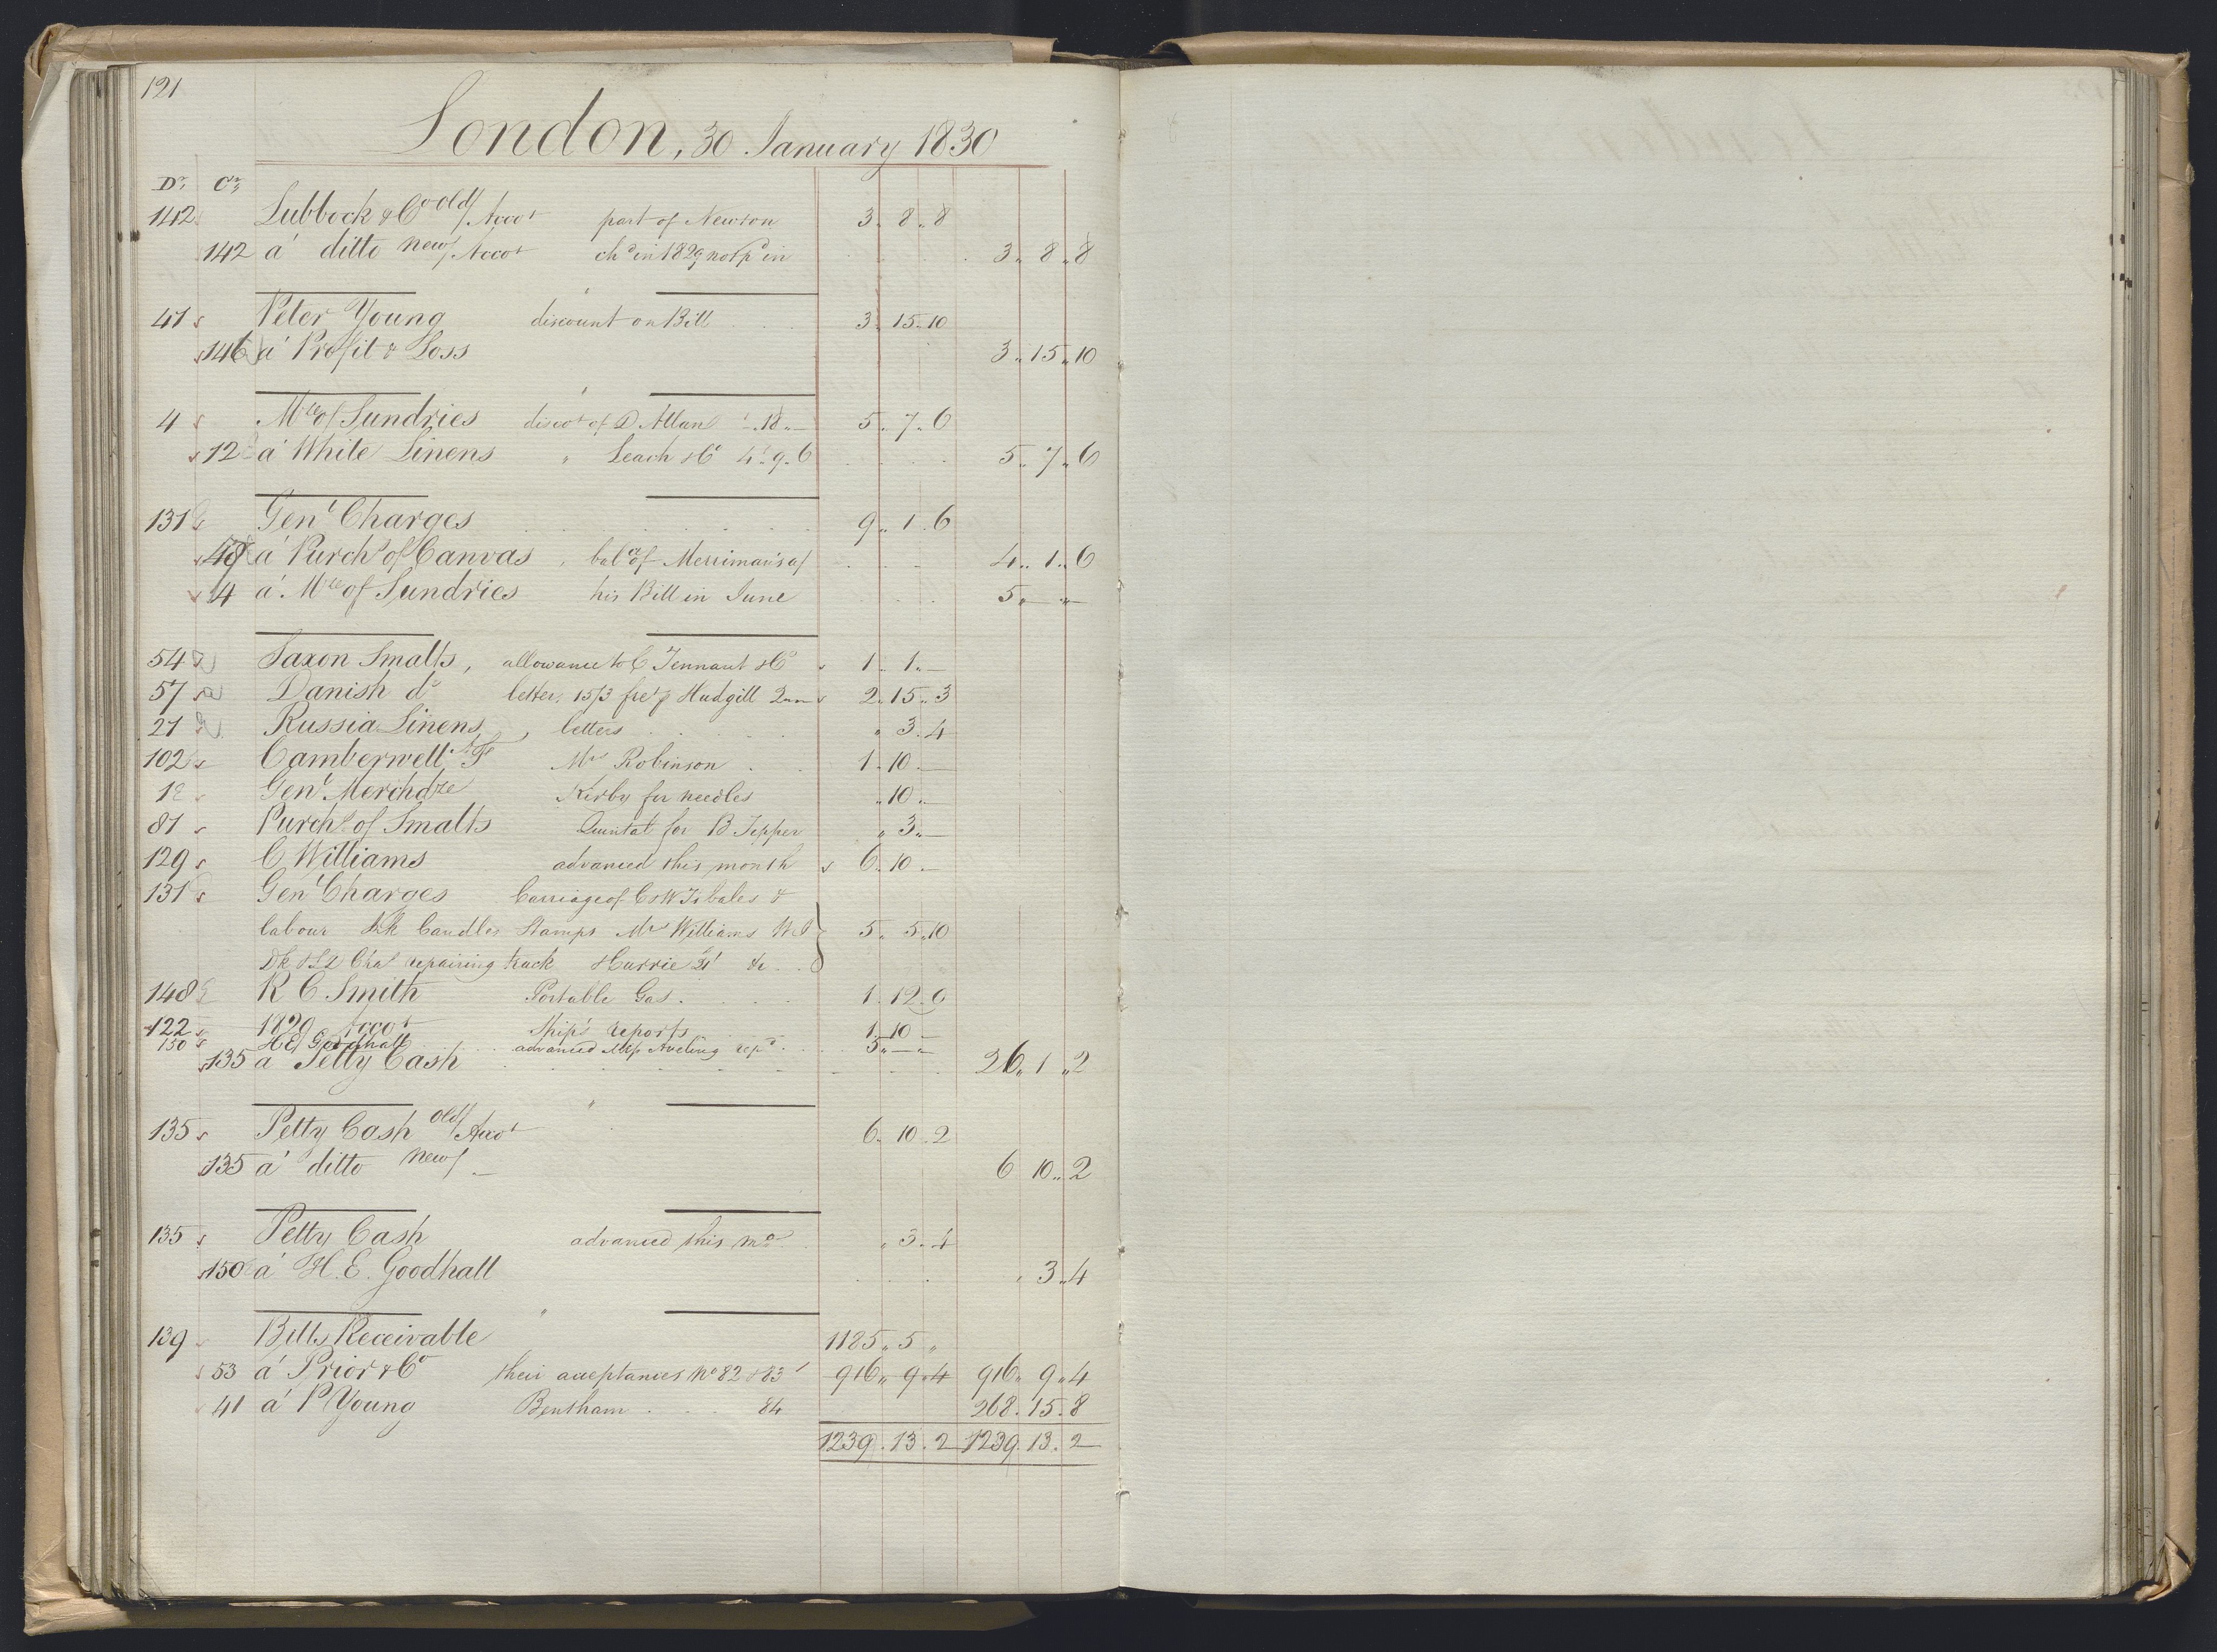 121
London, 30 January 1830
Dr. Cr.
142 Lubbock & Co old/ Accot part of Newton 3 . 8 . 8
142 á ditto new/ Accot chd in 1829 not pd in 3 " 8 " 8
41 Peter Young discount on Bill 3 . 15 . 10
146 á Profit & Loss 3 " 15 " 10
4 Mce of Sundries discot of D Allan - . 18 . - 5 . 7 . 6
12 á White Linens " Leach & Co 4 . 9 . 6 5 " 7 " 6
131 Genl Charges 9 " 1 . 6
48 á Purchs of Canvas, bale of Merriman's a/ 4 " 1 " 6
4 á Mce of Sundries his Bill in June 5 " — " —
54 Saxon Smalts, allowance to C Tennant & Co 1 . 1 " —
57 Danish do letter, 15/3 fret p Hudgill 2 . 15 . 3
21 Russia Linens, letters " 3 . 4
102 Camberwell Mr Robinson 1 . 10 . —
12 Genl Merchdze Kirby for needles " 10 " —
81 Purchs of Smalts Quintal for B Tepper " 3 " —
129 C Williams advanced this month 6 . 10 . —
131 Genl Charges Carriage of bales &
labour Candles Stamps Mr Williams 5 . 5 . 10
repairing truck &c
148 R C Smith Portable Gas . 1 . 12 . 6
122 1829 Accot Ship's reports 1 . 10 —
150 H E Goodhall advanced Aveling 5 " — " —
135 á Petty Cash 26 " 1 " 2
135 Petty Cash old/ Accot 6 . 10 . 2
135 á ditto new/ — 6 10 " 2
135 Petty Cash advanced this mo " 3 . 4
150 á H. E. Goodhall " 3 " 4
139 Bills Receivable 1185 " 5 "
53 á Prior & Co their acceptances No 82 & 83 916 " 9 " 4 916 " 9 " 4
41 á P Young Bentham . . . 84 268 . 15 . 8
1239 . 13 . 2 1239 . 13 . 2